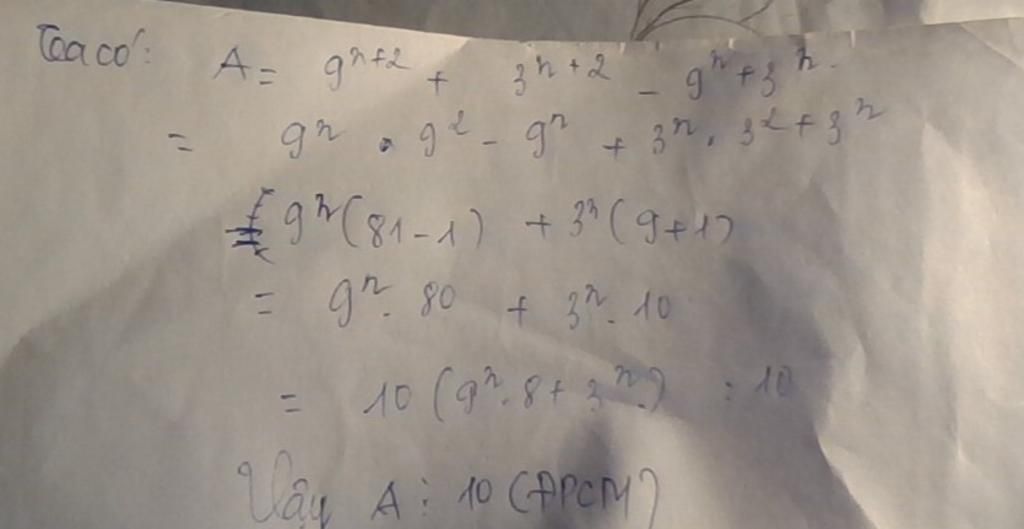 Ta có: A = 9ⁿ⁺² + 3ⁿ⁺² - 9ⁿ + 3ⁿ
= 9ⁿ . 9² - 9ⁿ + 3ⁿ . 3² + 3ⁿ
= 9ⁿ(81-1) + 3ⁿ(9+1)
= 9ⁿ . 80 + 3ⁿ . 10
= 10 (9ⁿ . 8 + 3ⁿ.) ⋮ 10
Vậy A ⋮ 10 (ĐPCM)